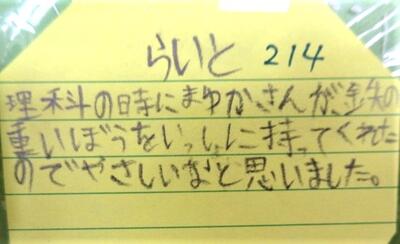 らいと 214
理科の時にまゆかさんが、鉄の
重いぼうをいっしに持ってくれた
のでやさしいなと思いました。